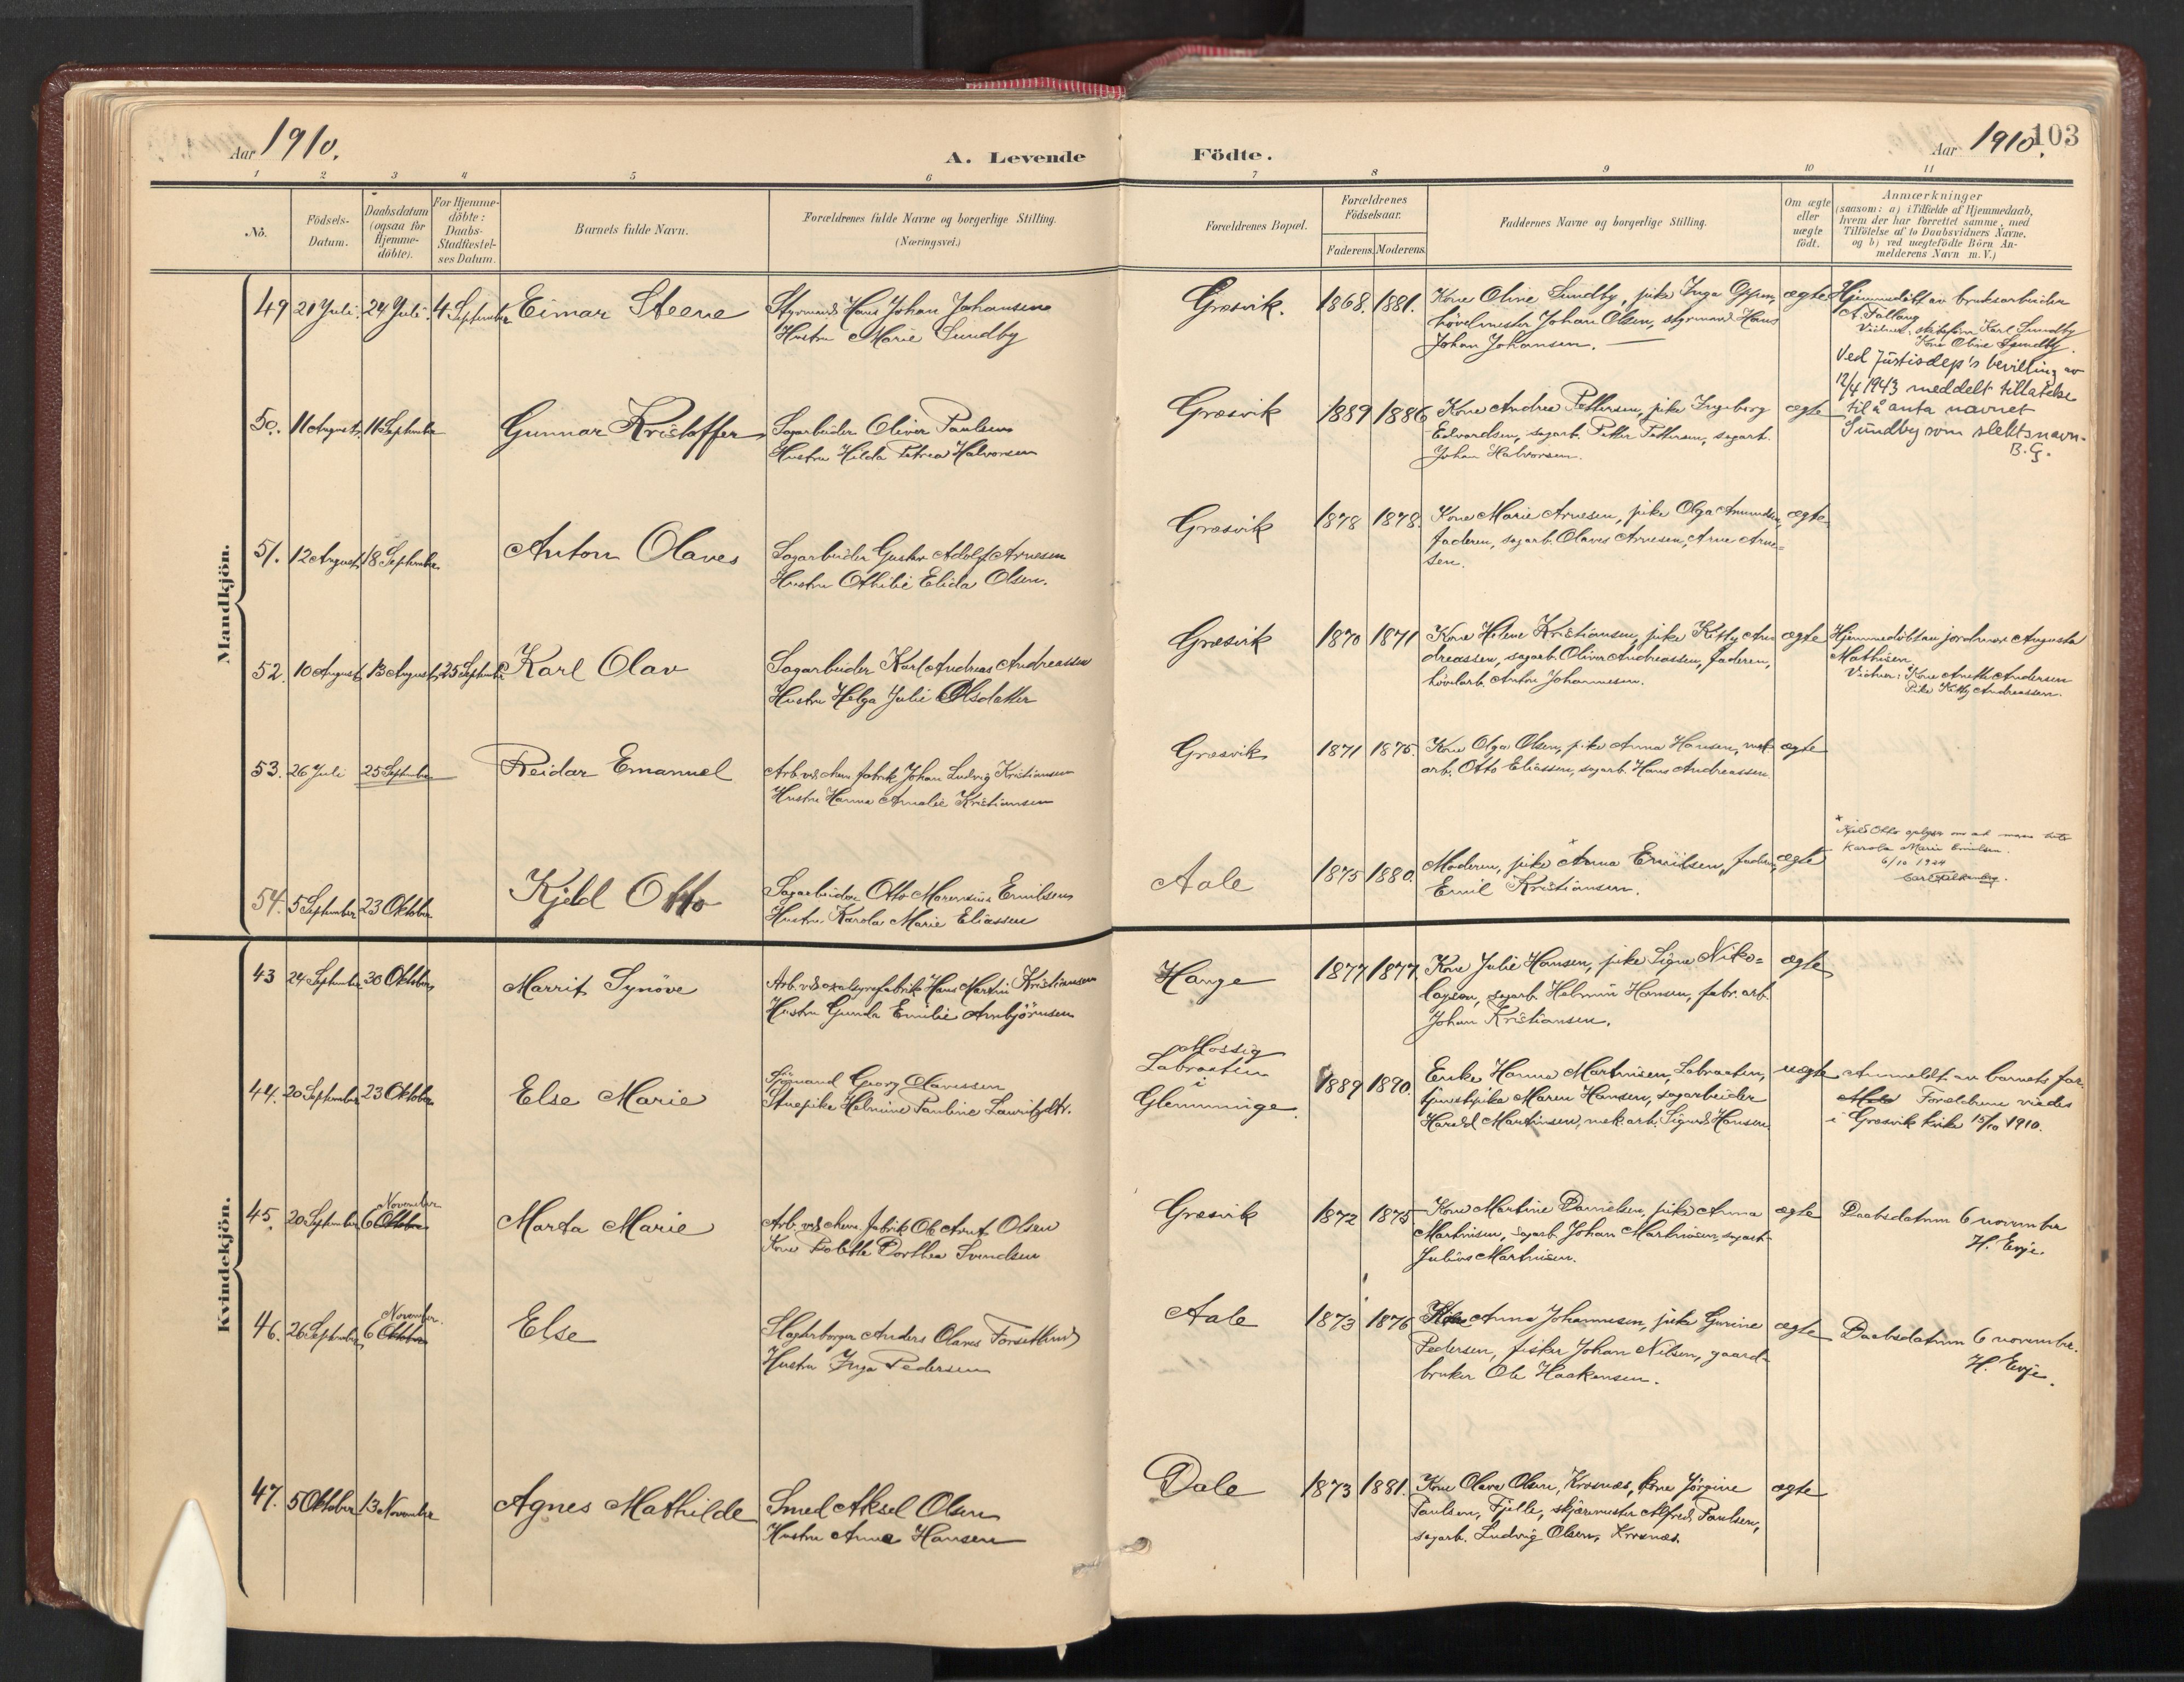 Aar 1910.
A. Levende
Födte.
Aar 1910.
103
1 2 3 4 5 6 7 8 9 10 11
No.
Födsels-
Datum.
Daabsdatum
(ogsaa for
Hjemme-
døbte).
For Hjemme-
döbte:
Daabs-
Stadfæstel-
ses Datum.
Barnets fulde Navn.
Forældrenes fulde Navne og borgerlige Stilling.
(Næringsvei.)
Forældrenes Bopæl.
Forældrenes
Födselsaar.
Faderens. Moderens.
Faddernes Navne og borgerlige Stilling.
Om ægte
eller
uægte
født.
Anmærkninger
(saasom: a) i Tilfælde af Hjemmedaab,
hvem der har forrettet samme, med
Tilföielse af to Daabsvidners Navne,
og b) ved uægtefödte Börn An-
melderens Navn m. V.)
Mandkjön.
49 21 Juli 24 Juli. 4 September Eimar Steene
Styrmand Hans Johan Johansen
Hustru Marie Sundby
Græsvik. 1868. 1881.
Kone Oline Sundby, pike Inga
hövelmester Johan Olsen, styrmand Hans
Johan Johansen.
ægte
Hjemmedöbt av bruksarbeider
A. Tallang
Vidner: Karl Sundby
Kone Oline Sundby.
Ved Justisdep's bevilling av
12/4 1943 meddelt tillatelse
til å anta navnet
Sundby som slektsnavn.
B. G.
50. 11 August 11 September Gunnar Kristoffer
Sagarbeider Oliver Paulsen
Hustru Hilda Petrea Halvorsen
Græsvik 1889 1886
Kone Andrea Pettersen, pike Ingeborg
Edvardsen, sagarb. Petter Pettersen, sagarb.
Johan Halvorsen.
ægte
51. 12 August 18 September Anton Olaves
Sagarbeider Gustav Adolf Arnesen
Hustru Othilie Elida Olsen.
Græsvik 1878 1878.
Kone Marie Arnesen, pike Olga Amundsen,
faderen, sagarb. Olaves Arnesen, Arne Arne=
sen.
ægte
52. 10 August 13 August 25 September Karl Olav
Sagarbeider Karl Andreas Andreassen
Hustru Helga Julie Olsdatter
Græsvik 1870 1871
Kone Helene Kristiansen, pike Kitty An
dreassen, sagarb. Oliver Andreassen, faderen,
hövlarb. Anton Johannesen.
ægte
Hjemmedöbt av jordmor Augusta
Mathisen.
Vidner: Kone Anette Andersen
Pike Kitty Andreassen.
53. 26 Juli 25 September Reidar Emanuel
Arb. ved chem. fabrik Johan Ludvig Kristiansen
Hustru Hanna Amalie Kristiansen
Græsvik 1871 1875
Kone Olga Olsen, pike Anna Hansen, mek.
arb. Otto Eliassen, sagarb. Hans Andreassen.
ægte
54. 5 September 23 Oktober Kjeld Otto
Sagarbeider Otto Marensius Emilsen
Hustru Karola Marie Eliassen
Aale 1875 1880.
Moderen, pike × Anna Emilsen, faderen,
Emil Kristiansen.
ægte
× Kjeld Otto oplyser om at
Karola Marie Emilsen.
6/10 1924
Kvindekjön.
43 24 September 30 Oktober Marrit Synöve
Arb. ved oxalsyrefabrik Hans Martin Kristiansen
Hustru Gunda Emilie Arnbjörnsen
Hauge 1877 1877
Kone Julie Hansen, pike Signe Niko=
laysen, sagarb. Helmin Hansen, fabr. arb.
Johan Kristiansen.
ægte
44. 20 September 23 Oktober Else Marie
Sjömand Georg Olavessen
Stuepike Helmine Pauline Lauritzdtr.
Mossig
Labraaten
i
Glemminge.
1889 1890.
Enke Hanna Martinsen, Labraaten,
tjenestpike Maren Hansen, sagarbeider
Harald Martinsen, mek. arb. Sigurd Hansen.
uægte
Anmeldt av barnets far.
Forældrene viedes
i Græsvik kirke 15/10 1910.
45. 20 September 6 Oktober November Marta Marie
Arb. ved chem. fabrik Ole Arnt Olsen
Kone Bolette Dorthea Svendsen
Græsvik 1872 1875
Kone Martine Danielsen, pike Anna
Martinsen, sagarb. Johan Martinsen, sagarb.
Julius Martinsen.
ægte
Daabsdatum 6 november
H. Evje.
46. 26 September 6 Oktober November. Else
Anders Olaves Forsetlund
Hustru Inga Pedersen
Aale 1873 1876
Kone Anna Johannesen, pike Gunine
Pedersen, fisker Johan Nilsen, gaard-
bruker Ole Haakensen.
ægte
Daabsdatum 6 november.
H. Evje.
47. 5 Oktober 13 November Agnes Mathilde
Smed Aksel Olsen
Hustru Anna Hansen
Dale 1873 1881.
Kone Olava Olsen, Krosnæs, kone Jörgine
Paulsen, Fjelle, skjæremester Alfred Paulsen,
sagarb. Ludvig Olsen, Krosnæs.
ægte